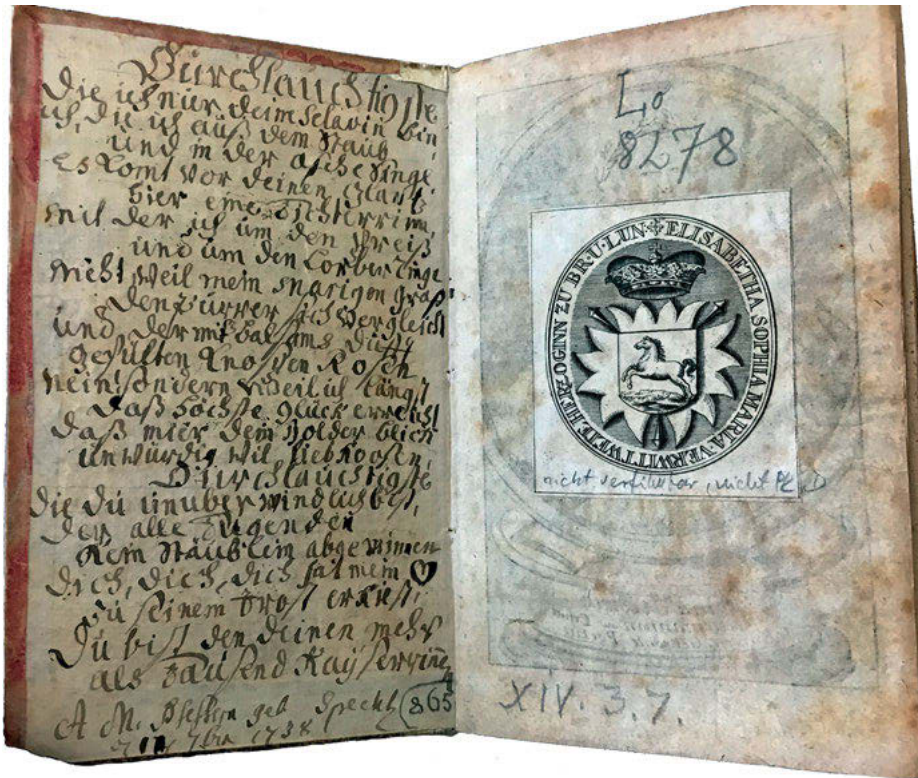 Dürchlauchtigste
Die ich nur deine Sclavin bin
ich, die ich auß dem Staub
und in der asche singe
Es komt vor deinen
hier eine Dichterrinn,
mit der ich um den Preiß
und um den Lorber ringe
nicht weil mein
sich vergleicht
und der mit balsams dufft
gefülten Knospen Rosen
nein! sondern weil ich längst
daß höchste glück erreicht
daß mier dein holder blick
unwürdig wil liebkoosen,
Dürchlauchtigste
die du unüberwindlich bist,
der alle Tugenden
Kein Stäublein abgewinnen
dich, dich, dich hat mein ♡
zu seinem Trost erkiest,
Du bist den deinen mehr
als Tausend Kayserrinen
A M. geb Specht
1738
865
Lo
8278
ELISABETHA SOPHIA MARIA·VERWITTWETE·HERZOGINN ZU BR·U·LUN
nicht verfilmbar, nicht
XIV. 3. 7.